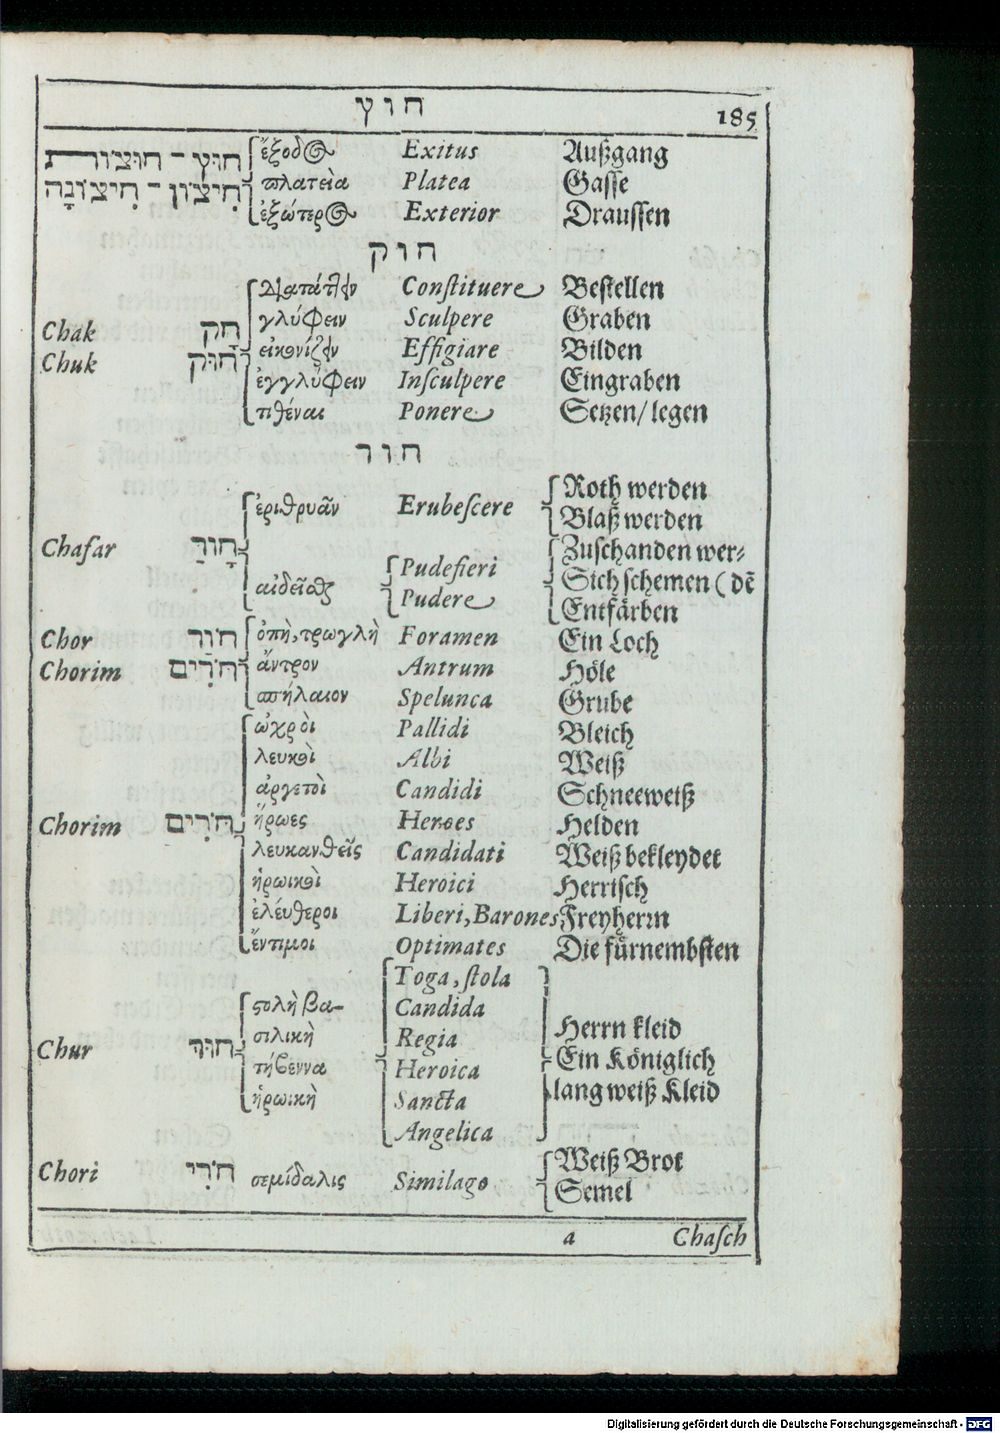 חוץ 185
חוּץ - חוּצוֹת ἔξοδος Exitus Außgang
חִיצוֹן - חִיצוֹנָה πλατεῖα Platea Gasse
ἐξώτερος Exterior Draussen
חוק
Constituere Bestellen
Chak חָק γλύφειν Sculpere Graben
Chuk חוּק εἰκονίζειν Effigiare Bilden
ἐγγλύφειν Insculpere Eingraben
τιθέναι Ponere Setzen/ legen
חור
Roth werden
ἐριθρυᾶν Erubescere Blaß werden
Chafar חָוַר Zuschanden wer-
αἰδεῖσθαι Pudefieri Sich schemen (dē
Pudere Entfärben
Chor חוֹר ὀπὴ, τρωγλὴ Foramen Ein Loch
Chorim חֹרִים ἄντρον Antrum Höle
σπήλαιον Spelunca Grube
ὠχροὶ Pallidi Bleich
λευκοὶ Albi Weiß
ἀργετοὶ Candidi Schneeweiß
Chorim חֹרִים ἥρωες Heroes Helden
λευκανθεῖς Candidati Weiß bekleydet
ἡρωικοὶ Heroici Herrisch
ἐλέυθεροι Liberi, Barones Freyherrn
ἔντιμοι Optimates Die fürnembsten
Toga, stola
στολὴ βα- Candida
σιλικὴ Regia Herrn kleid
Chur חוּר τήβεννα Heroica Ein Königlich
ἡρωικὴ Sancta lang weiß Kleid
Angelica
Chori חֹרִי σεμίδαλις Similago Weiß Brot
Semel
a Chasch
Digitalisierung gefördert durch die Deutsche Forschungsgemeinschaft - DFG